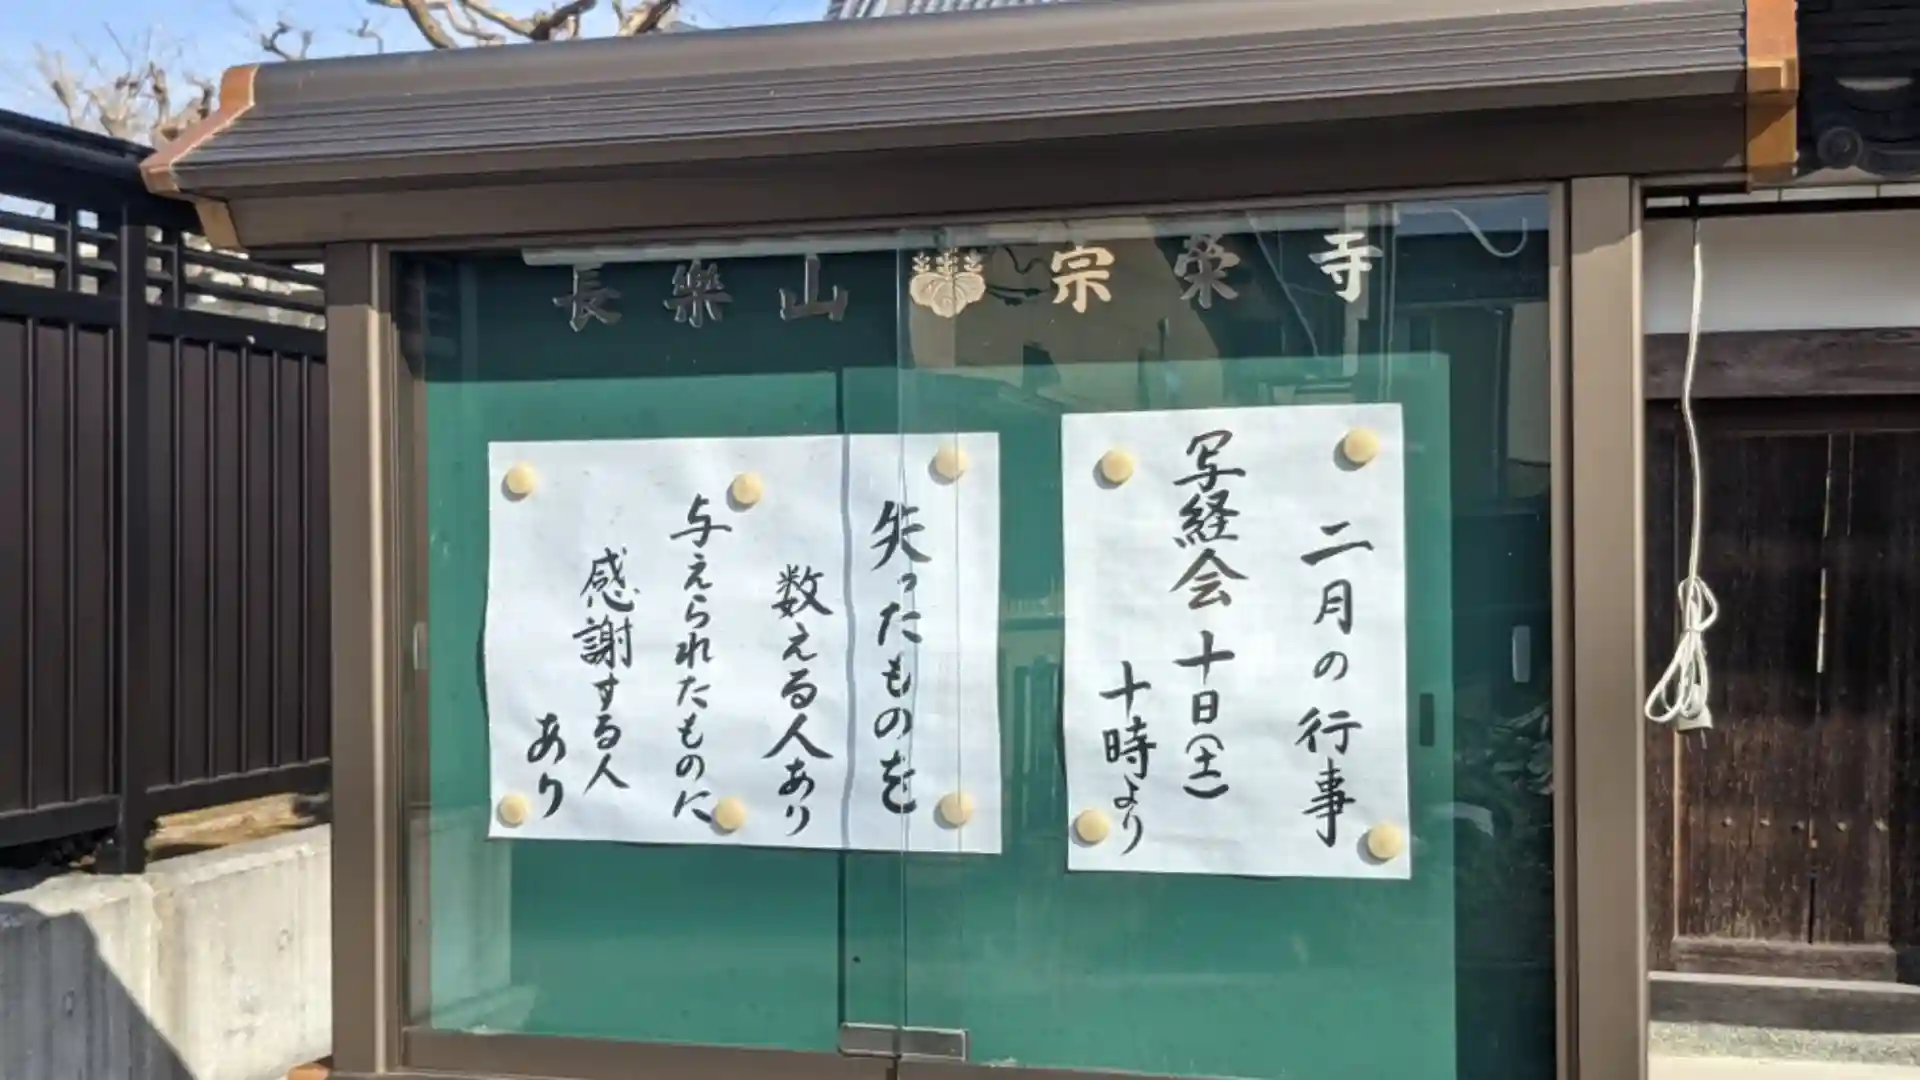 長樂山 宗榮寺
二月の行事
写経会 十日(土)
十時より
失ったものを
数える人あり
与えられたものに
感謝する人
あり